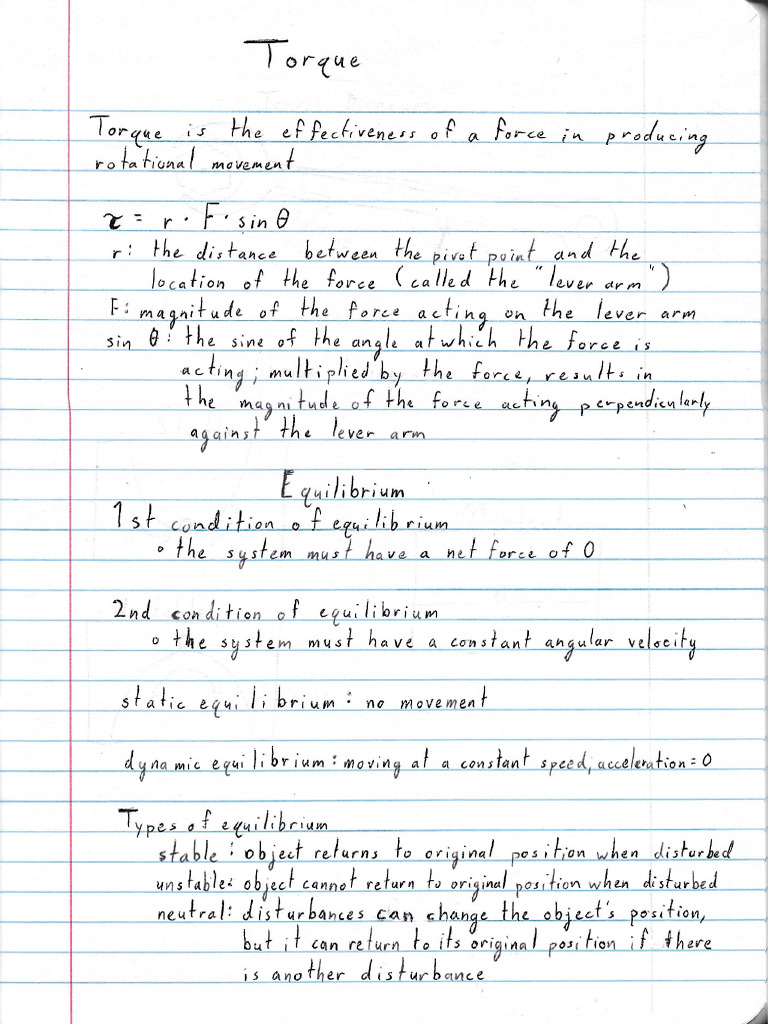 Torque
Torque is the effectiveness of a force in producing
rotational movement
τ = r · F · sin θ
r: the distance between the pivot point and the
location of the force (called the "lever arm")
F: magnitude of the force acting on the lever arm
sin θ: the sine of the angle at which the force is
acting; multiplied by the force, results in
the magnitude of the force acting perpendicularly
against the lever arm
Equilibrium
1st condition of equilibrium
• the system must have a net force of 0
2nd condition of equilibrium
• the system must have a constant angular velocity
static equilibrium: no movement
dynamic equilibrium: moving at a constant speed, acceleration = 0
Types of equilibrium
stable: object returns to original position when disturbed
unstable: object cannot return to original position when disturbed
neutral: disturbances can change the object's position,
but it can return to its original position if there
is another disturbance